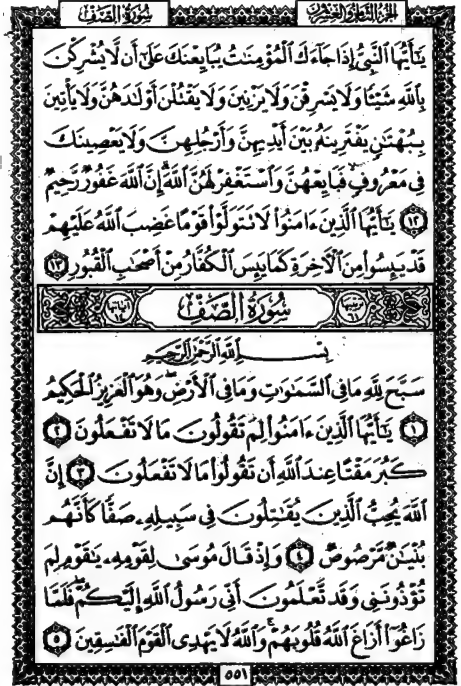 الجزء الثامن والعشرون سورة الصف
يَٰٓأَيُّهَا ٱلنَّبِيُّ إِذَا جَآءَكَ ٱلْمُؤْمِنَٰتُ يُبَايِعْنَكَ عَلَىٰٓ أَن لَّا يُشْرِكْنَ
بِٱللَّهِ شَيْـًٔا وَلَا يَسْرِقْنَ وَلَا يَزْنِينَ وَلَا يَقْتُلْنَ أَوْلَٰدَهُنَّ وَلَا يَأْتِينَ
بِبُهْتَٰنٍ يَفْتَرِينَهُۥ بَيْنَ أَيْدِيهِنَّ وَأَرْجُلِهِنَّ وَلَا يَعْصِينَكَ
فِى مَعْرُوفٍ فَبَايِعْهُنَّ وَٱسْتَغْفِرْ لَهُنَّ ٱللَّهَ إِنَّ ٱللَّهَ غَفُورٌ رَّحِيمٌ
١٢ يَٰٓأَيُّهَا ٱلَّذِينَ ءَامَنُوا۟ لَا تَتَوَلَّوْا۟ قَوْمًا غَضِبَ ٱللَّهُ عَلَيْهِمْ
قَدْ يَئِسُوا۟ مِنَ ٱلْءَاخِرَةِ كَمَا يَئِسَ ٱلْكُفَّارُ مِنْ أَصْحَٰبِ ٱلْقُبُورِ ١٣
سُورَةُ ٱلصَّفِّ
بِسْمِ ٱللَّهِ ٱلرَّحْمَٰنِ ٱلرَّحِيمِ
سَبَّحَ لِلَّهِ مَا فِى ٱلسَّمَٰوَٰتِ وَمَا فِى ٱلْأَرْضِ وَهُوَ ٱلْعَزِيزُ ٱلْحَكِيمُ
١ يَٰٓأَيُّهَا ٱلَّذِينَ ءَامَنُوا۟ لِمَ تَقُولُونَ مَا لَا تَفْعَلُونَ ٢
كَبُرَ مَقْتًا عِندَ ٱللَّهِ أَن تَقُولُوا۟ مَا لَا تَفْعَلُونَ ٣ إِنَّ
ٱللَّهَ يُحِبُّ ٱلَّذِينَ يُقَٰتِلُونَ فِى سَبِيلِهِۦ صَفًّا كَأَنَّهُم
بُنْيَٰنٌ مَّرْصُوصٌ ٤ وَإِذْ قَالَ مُوسَىٰ لِقَوْمِهِۦ يَٰقَوْمِ لِمَ
تُؤْذُونَنِى وَقَد تَّعْلَمُونَ أَنِّى رَسُولُ ٱللَّهِ إِلَيْكُمْ فَلَمَّا
زَاغُوٓا۟ أَزَاغَ ٱللَّهُ قُلُوبَهُمْ وَٱللَّهُ لَا يَهْدِى ٱلْقَوْمَ ٱلْفَٰسِقِينَ ٥
٥٥١